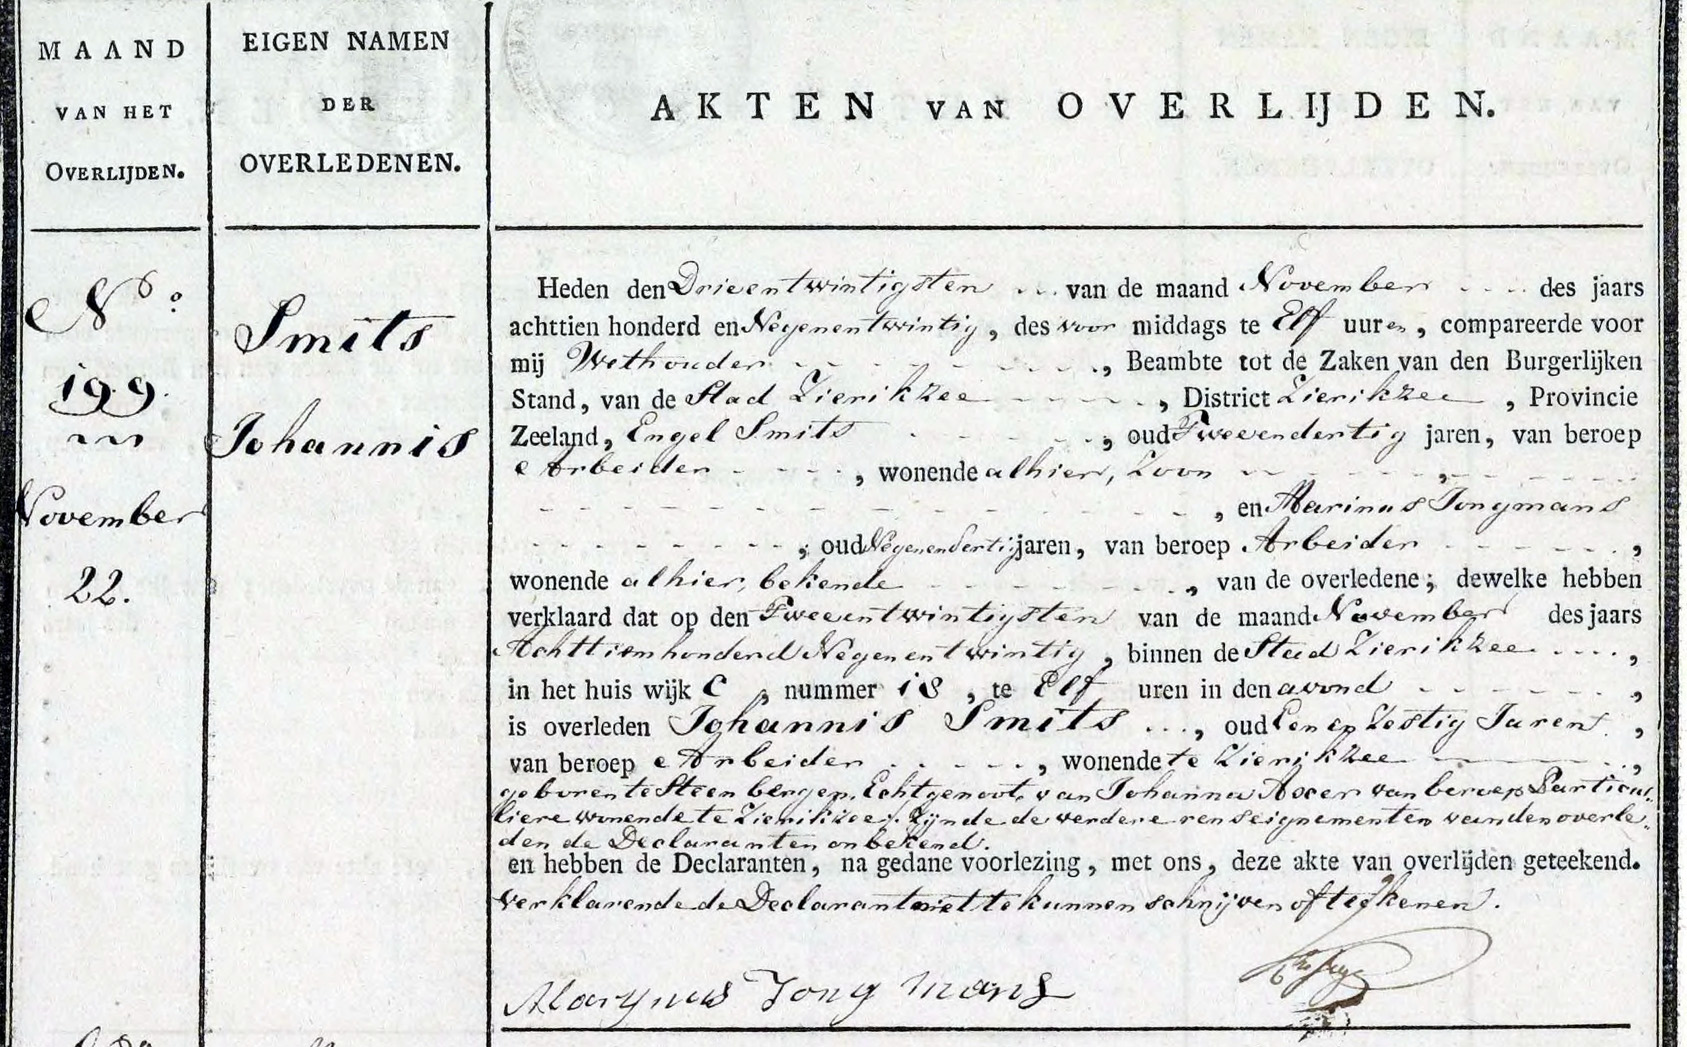 MAAND
VAN HET
OVERLIJDEN.
EIGEN NAMEN
DER
OVERLEDENEN.
AKTEN VAN OVERLIJDEN.
No.
199.
November
22.
Smits
Johannis
Heden den Drieentwintigsten van de maand November des jaars
achttien honderd en Negenentwintig, des voor middags te Elf uuren, compareerde voor
mij Wethouder, Beambte tot de Zaken van den Burgerlijken
Stand, van de Stad Zierikzee, District Zierikzee, Provincie
Zeeland, Engel Smits, oud Tweeendertig jaren, van beroep
Arbeider, wonende alhier, Zoon
, en Marinus Jongmans
, oud Negenendertig jaren, van beroep Arbeider,
wonende alhier, bekende, van de overledene; dewelke hebben
verklaard dat op den Tweeentwintigsten van de maand November des jaars
Achttienhonderd Negenentwintig, binnen de Stad Zierikzee,
in het huis wijk C, nummer 18, te Elf uren in den avond,
is overleden Johannis Smits, oud Een en Zestig Jaren,
van beroep Arbeider, wonende te Zierikzee,
geboren te Steenbergen, Echtgenoot van Johanna van beroep Particul-
liere wonende te Zierikzee, Zijnde de verdere renseignementen van den overle-
den de Declaranten onbekend.
en hebben de Declaranten, na gedane voorlezing, met ons, deze akte van overlijden geteekend.
verklarende de Declarant niet te kunnen schrijven of teekenen.
Marynus Jong mans